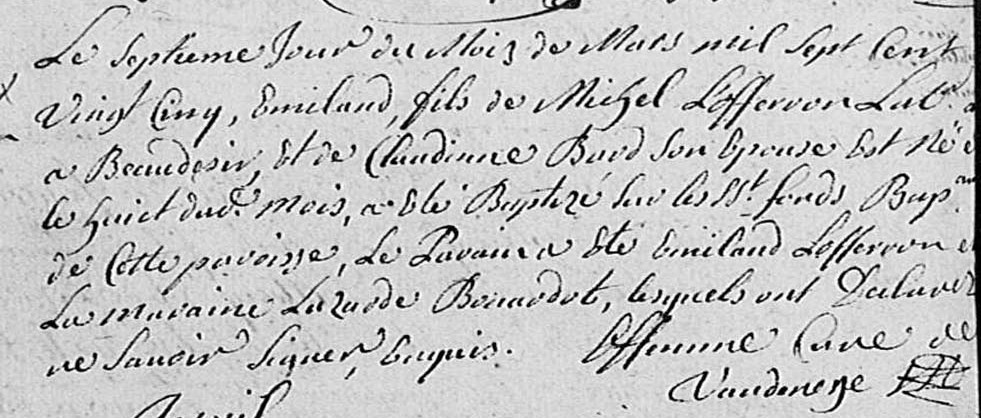 Le septieme Jour du Mois de Mars mil sept Cent
Vingt Cinq, Emiland, fils de Michel Lofferron Lab.r
a Beaudesir, Et de Claudinne Bard son Epouse Est Né
le huict dud. mois, a Eté Baptizé sur les Sts fonds Bap
de Cette paroisse, Le Parain a Eté Emiland Lofferron et
La maraine Lazarde Bonardot, lesquels ont Declarez
ne savoir signer, Enquis. Cure de
Vaudenesse